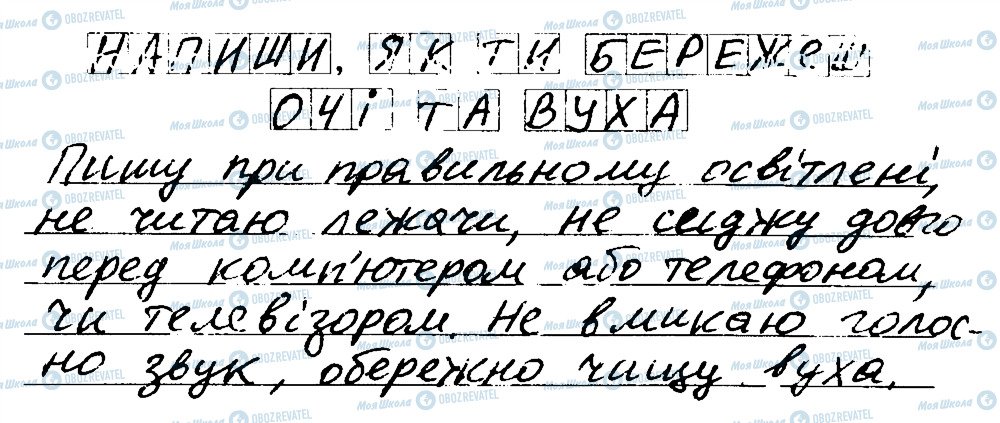 НАПИШИ, ЯК ТИ БЕРЕЖЕШ
ОЧІ ТА ВУХА
Пишу при правильному освітлені,
не читаю лежачи, не сиджу довго
перед комп'ютером або телефоном,
чи телевізором. Не вмикаю голос-
но звук, обережно чищу вуха.